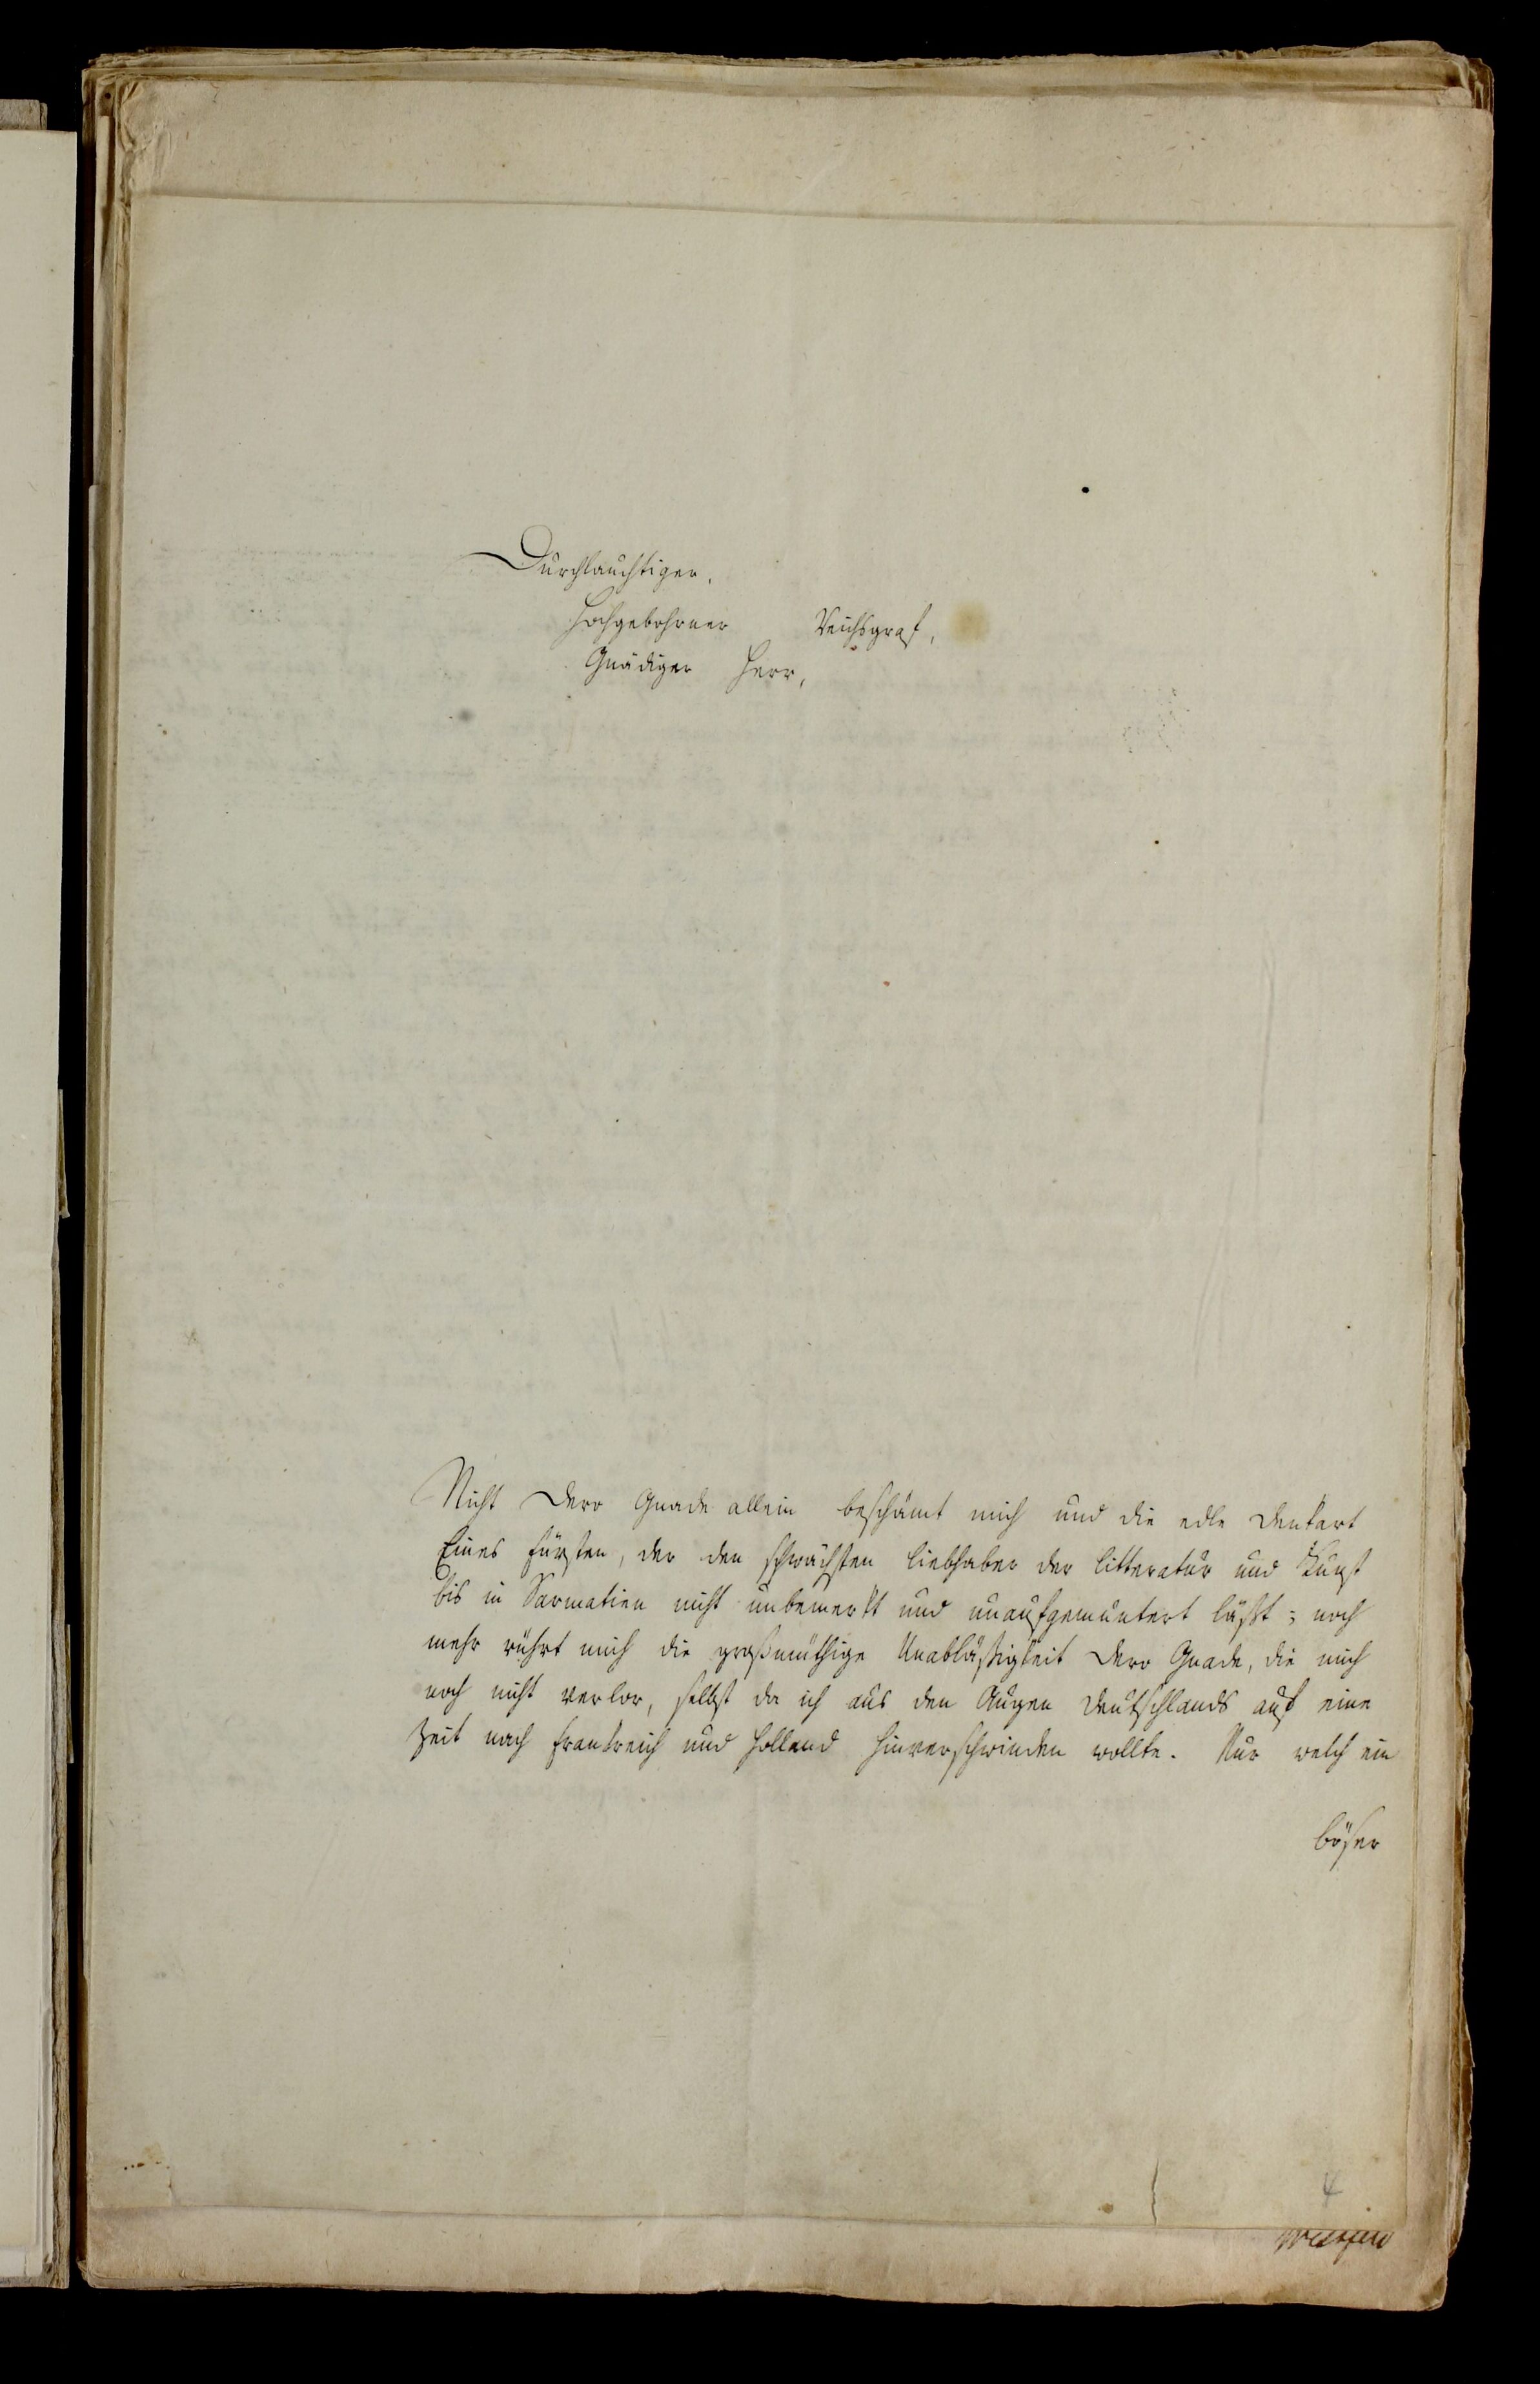 Durchlauchtiger,
Hochgebohrner Reichsgraf,
Gnädiger Herr,
Nicht Dero Gnade allein beschämt mich und die edle Denkart
Eines Fürsten, der den schwächsten Liebhaber der Litteratur und Kunst
bis in Sarmatien nicht unbemerkt und unaufgemuntert läßt; noch
mehr rührt mich die großmüthige Unabläßigkeit Dero Gnade, die mich
noch nicht verlor, selbst da ich aus den Augen Deutschlands auf eine
Zeit nach Frankreich und Holland hinverschwinden wollte. Nur welch ein
böser
4